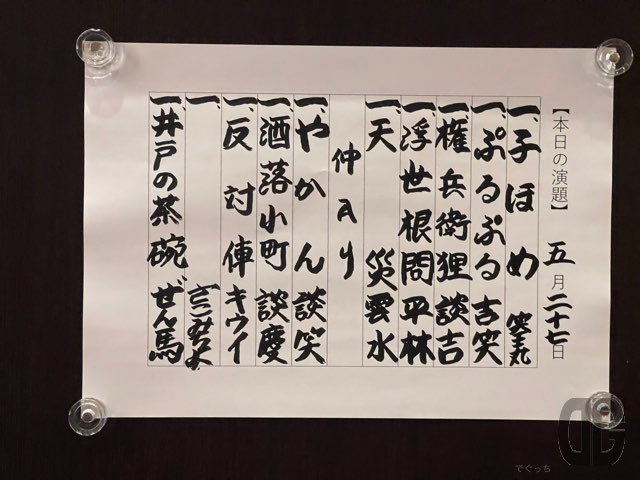 【本日の演題】 五月二十七日
一、子ほめ 笑王丸
一、ぷるぷる 吉笑
一、権兵衛狸 談吉
一、浮世根問 平林
一、天災 雲水
仲入り
一、やかん 談笑
一、洒落小町 談慶
一、反対俥 キウイ
一、
一、井戸の茶碗 ぜん馬
でぐっち